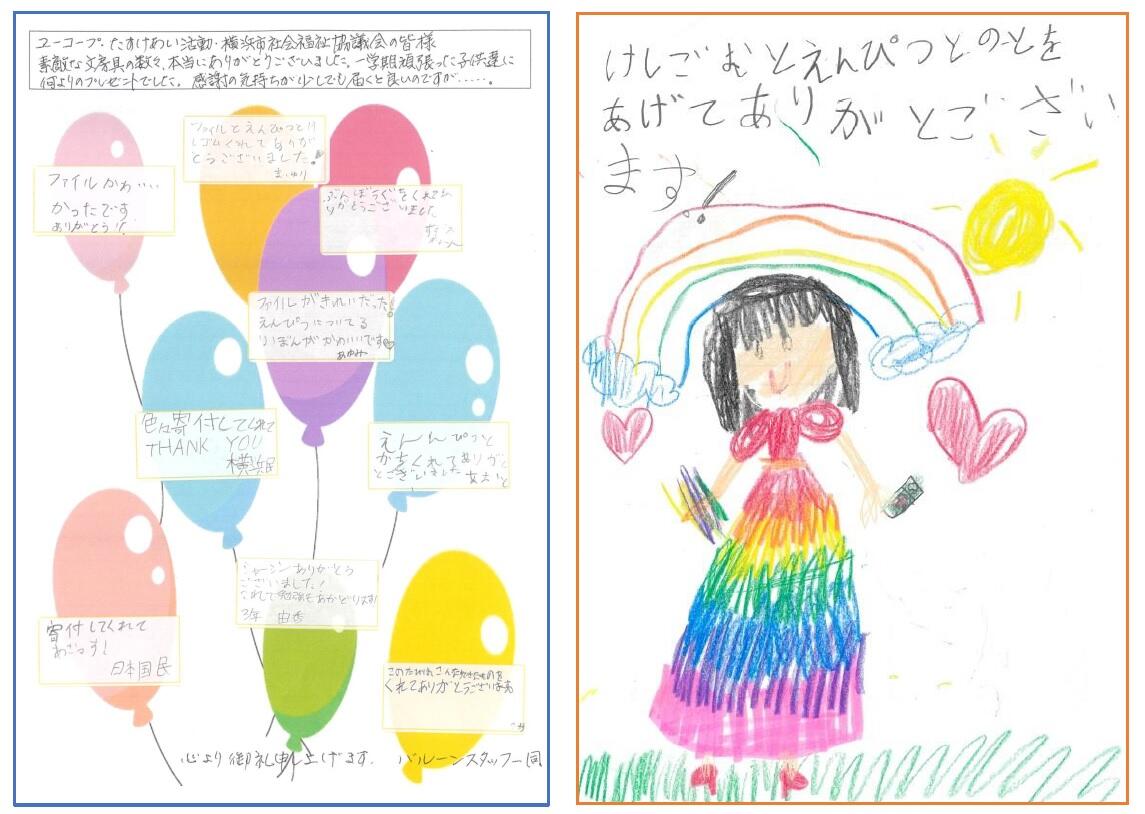 ユーコープ・たすけあい活動・横浜市社会福祉協議会の皆様
素敵な文房具の数々、本当にありがとうございました。一学期頑張った子供達に
何よりのプレゼントでした。感謝の気持ちが少しでも届くと良いのですが……。
ファイルとえんぴつとけ
しゴムくれてありが
とうございました!
まいゆり
ファイルかわいい
かったです
ありがとう!!
ぶんぼうぐをくれてあ
りがとうございました
ファイルがきれいだった!
えんぴつについてる
りぼんがかわいいです
あゆみ
色々寄付してくれて
THANK YOU
横浜民
えんぴつと
かをくれてありがと
とございました
シャーシンありがとう
ございました!
これで勉強もはかどります!
3年 由香
寄付してくれて
あざっす!
日本国民
くれてありがとうございます
心より御礼申し上げます。 バルーンスタッフ一同
けしごむとえんぴつとのとを
あげてありがとござい
ます!